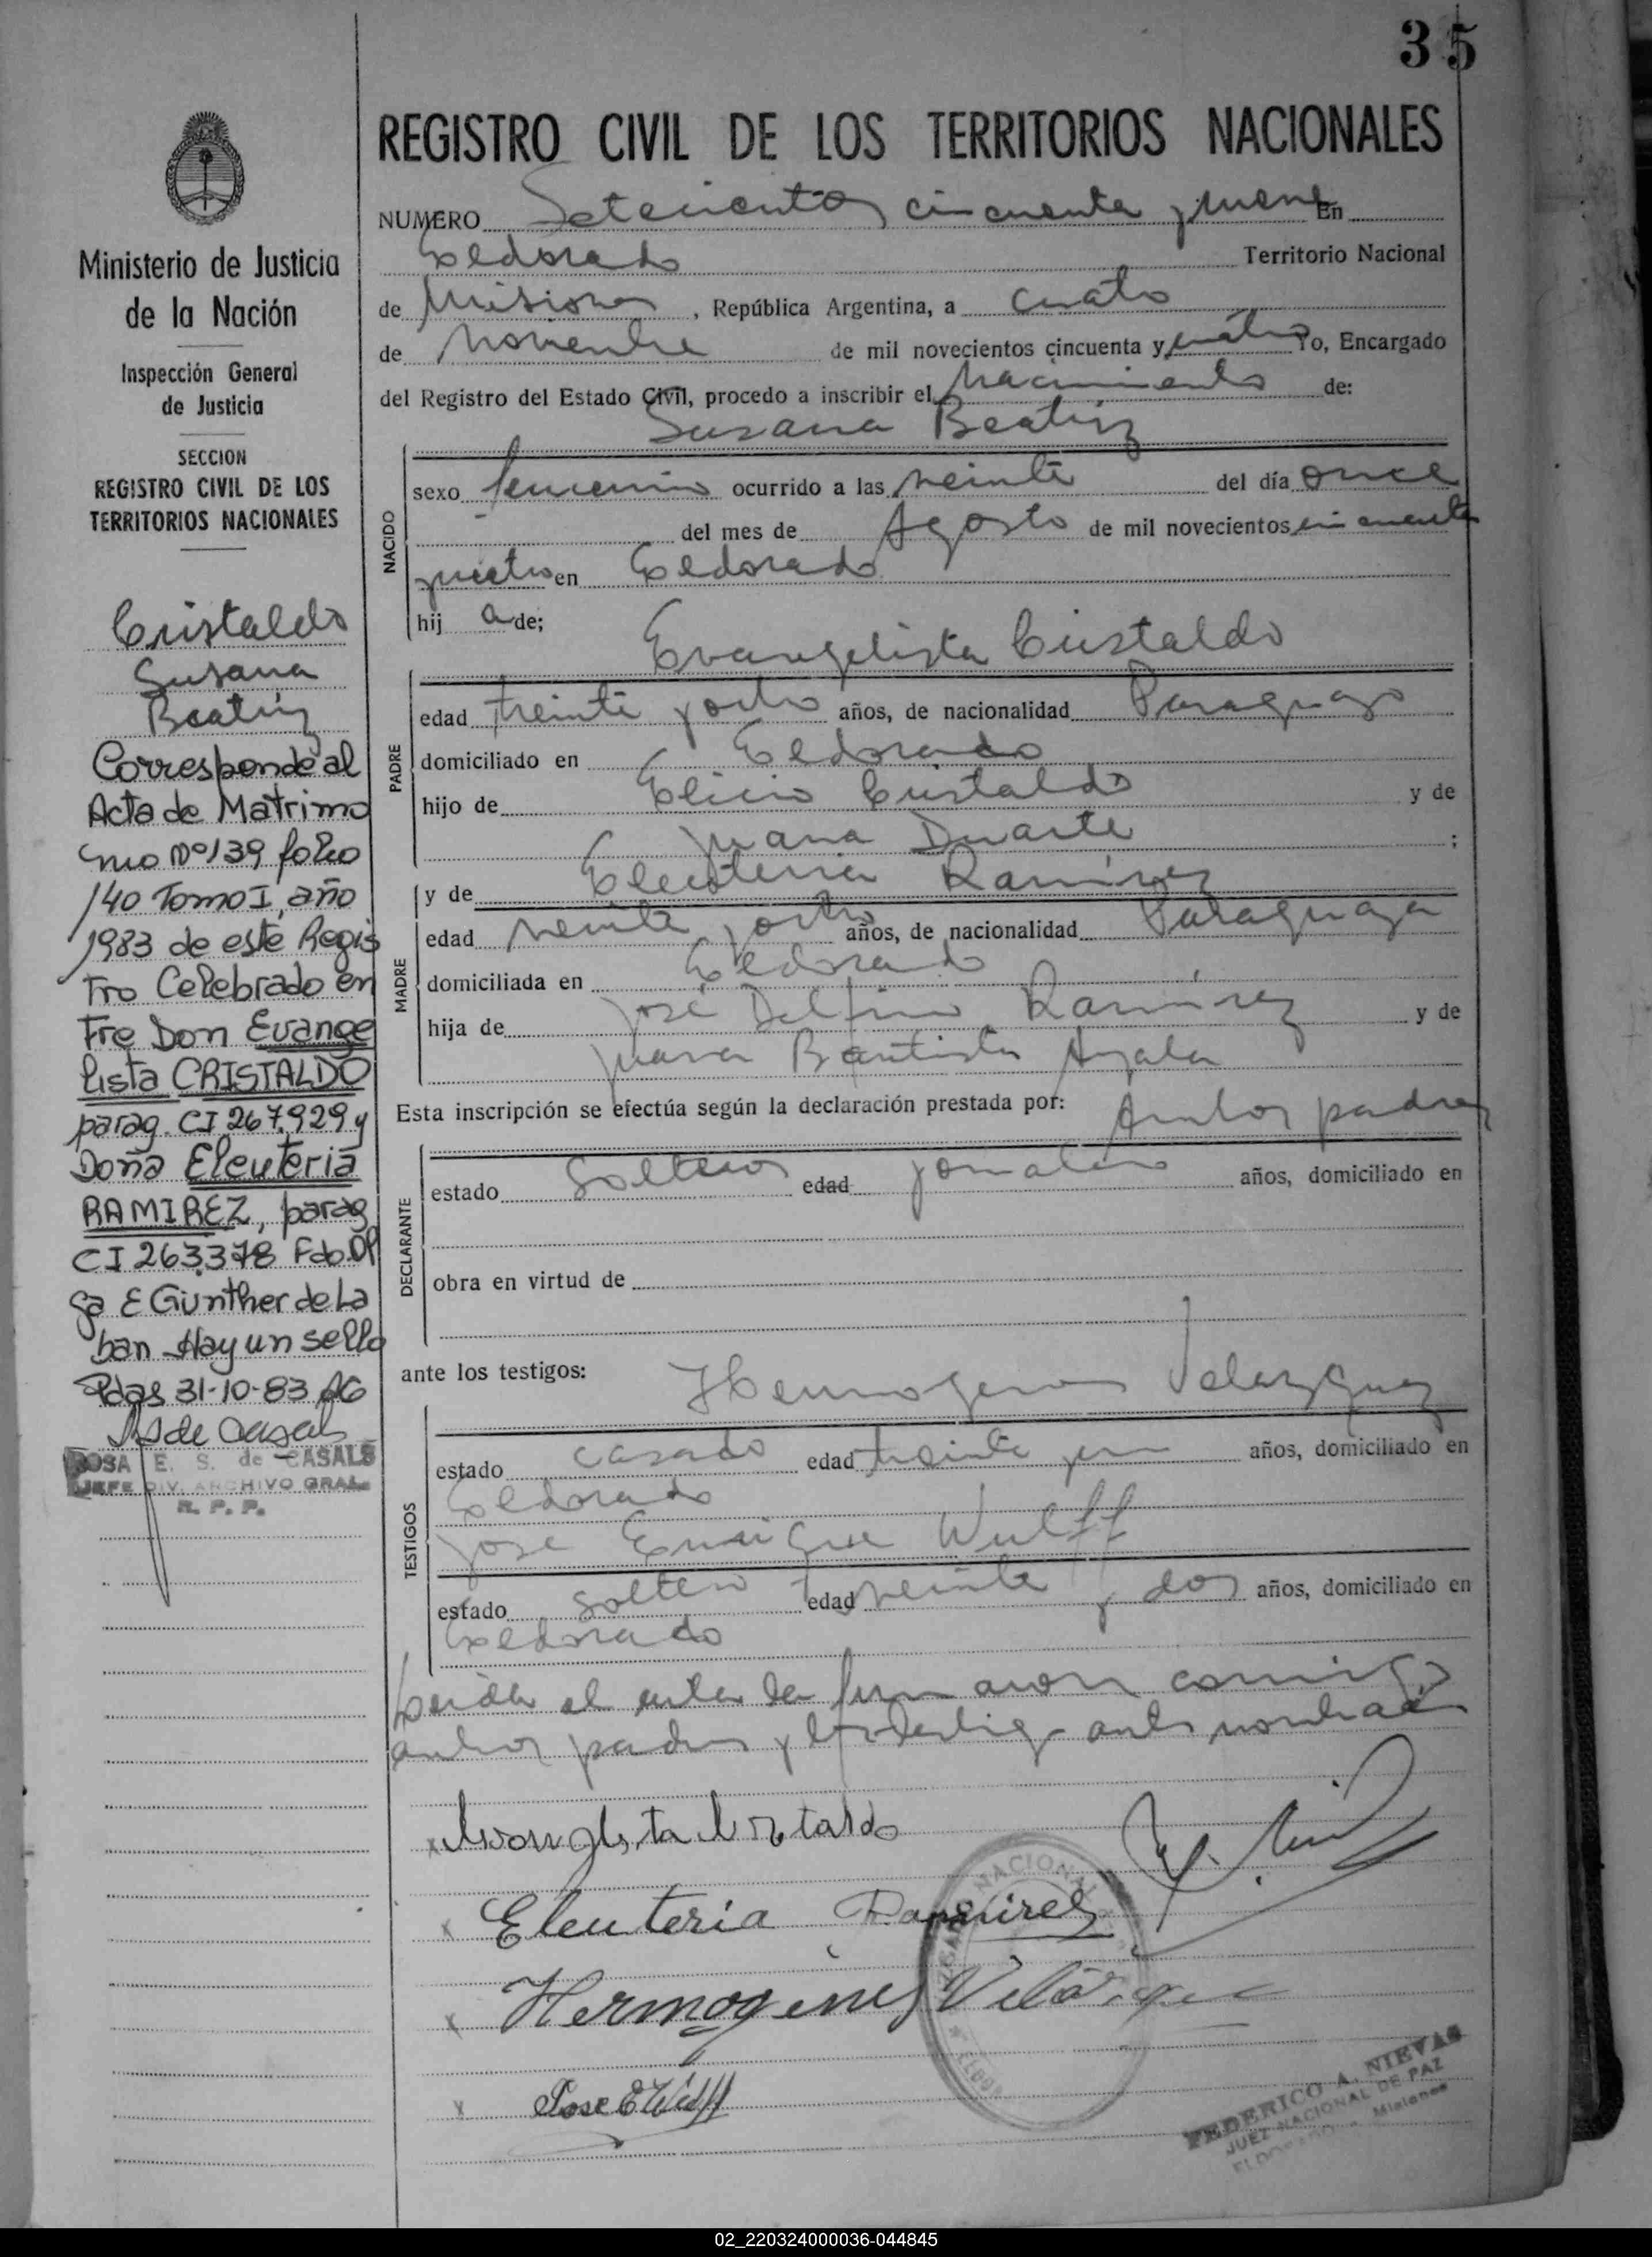 35
REGISTRO CIVIL DE LOS TERRITORIOS NACIONALES
NUMERO Setecientos cincuenta y nueve En
Eldorado Territorio Nacional
de Misiones, República Argentina, a cuatro
de Noviembre de mil novecientos cincuenta y cuatro Yo, Encargado
del Registro del Estado Civil, procedo a inscribir el Nacimiento de:
Susana Beatriz
NACIDO
sexo femenino ocurrido a las veinte del día once
del mes de Agosto de mil novecientos cincuenta
y cuatro en Eldorado
hij a de;
Evangelista Cristaldo
PADRE
edad treinta y ocho años, de nacionalidad Paraguayo
domiciliado en Eldorado
hijo de Elicio Cristaldo y de
Juana Duarte ;
y de Eleuteria Ramírez
MADRE
edad veinte y ocho años, de nacionalidad Paraguaya
domiciliada en Eldorado
hija de José Delfino Ramírez y de
Juana Bautista Ayala
Esta inscripción se efectúa según la declaración prestada por: Ambos padres
DECLARANTE
estado Solteros edad jornalero años, domiciliado en
obra en virtud de
ante los testigos: Hermogenes Velazquez
TESTIGOS
estado casado edad treinta y un años, domiciliado en
Eldorado
Jose Enrique Wulff
estado soltero edad veinte y dos años, domiciliado en
Eldorado
Leida el acta la firmaron conmigo
ambos padres y los testigos antes nombrados
Eleuteria Ramirez
Hermogenes Velázquez
Jose E Wulff
NACIONAL
FEDERICO A. NIEVAS
JUEZ NACIONAL DE PAZ
ELDORADO - Misiones
Ministerio de Justicia
de la Nación
Inspección General
de Justicia
SECCION
REGISTRO CIVIL DE LOS
TERRITORIOS NACIONALES
Cristaldo
Susana
Beatriz
Corresponde al
Acta de Matrimo
nio Nº 139 folio
140 Tomo I, año
1983 de este Regis
tro Celebrado en
tre Don Evange
lista CRISTALDO
parag. CI 267.929 y
Doña Eleuteria
RAMIREZ, parag
CI 263.378 Fdo. Ol
ga E Günther de La
ban Hay un sello
Pdas 31-10-83
RS de Casals
ROSA E. S. de CASALS
JEFE DIV. ARCHIVO GRAL.
R. P. P.
02_220324000036-044845